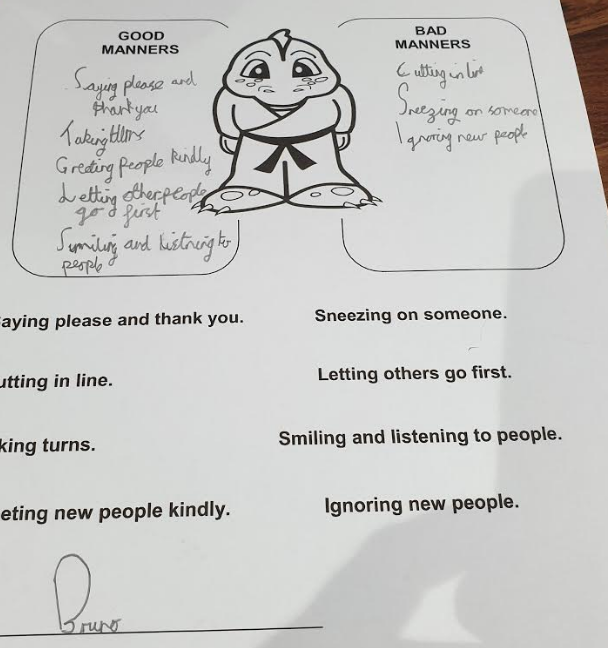 GOOD
MANNERS
Saying please and
thankyou
Taking
Greeting people kindly
Letting otherpeople
go first
Smiling and listning to
people
BAD
MANNERS
Cutting in line
Sneezing on someone
Ignoring new people
aying please and thank you.
Sneezing on someone.
utting in line.
Letting others go first.
king turns.
Smiling and listening to people.
eting new people kindly.
Ignoring new people.
Bruno